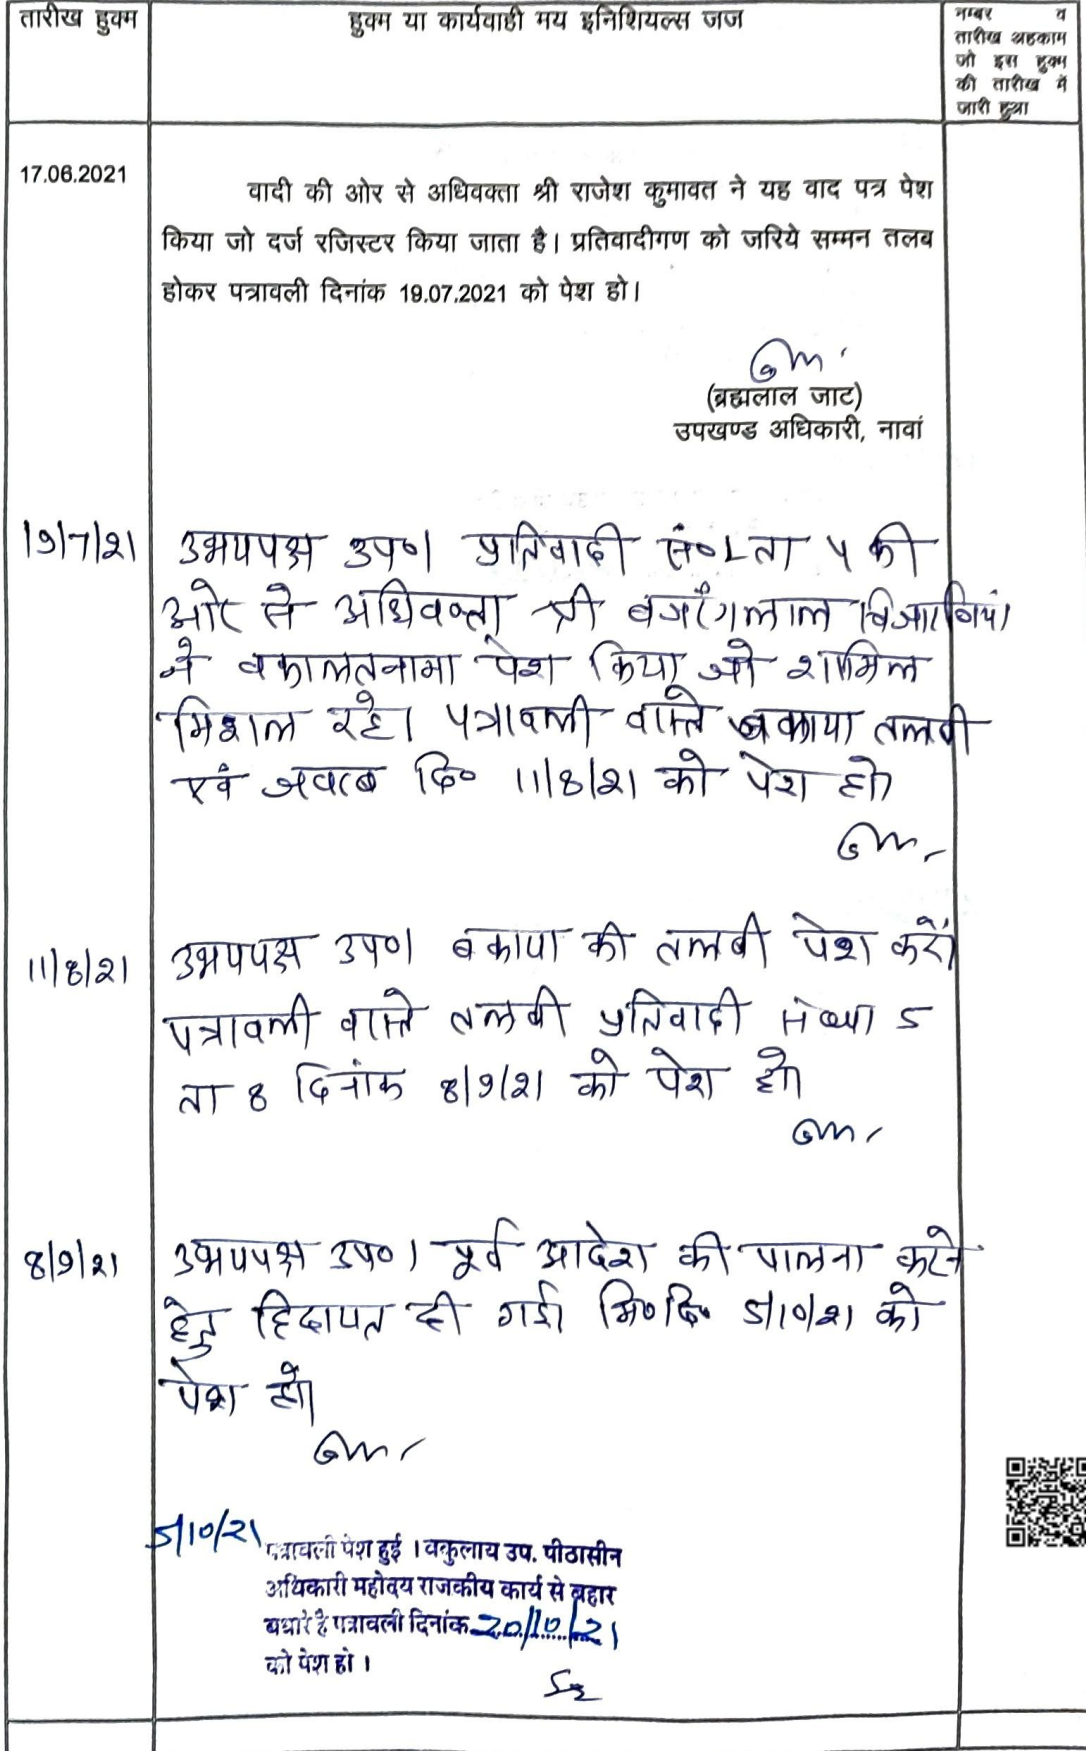 तारीख हुक्म
हुक्म या कार्यवाही मय इनिशियल्स जज
नम्बर व
तारीख अहकाम
जो इस हुक्म
की तारीख में
जारी हुआ
17.06.2021
वादी की ओर से अधिवक्ता श्री राजेश कुमावत ने यह वाद पत्र पेश
किया जो दर्ज रजिस्टर किया जाता है। प्रतिवादीगण को जरिये सम्मन तलब
होकर पत्रावली दिनांक 19.07.2021 को पेश हो।
(ब्रह्मलाल जाट)
उपखण्ड अधिकारी, नावां
19/7/21 उभयपक्ष उप०। प्रतिवादी सं० 1 ता 4 की
ओर से अधिवक्ता श्री बजरंगलाल
ने वकालतनामा पेश किया जो शामिल
मिशल रहे। पत्रावली वास्ते बकाया तलबी
एवं जवाब दि० 11/8/21 को पेश हो।
11/8/21 उभयपक्ष उप०। बकाया की तलबी पेश करें।
पत्रावली वास्ते तलबी प्रतिवादी संख्या 5
ता 8 दिनांक 8/9/21 को पेश हो।
8/9/21 उभयपक्ष उप०। पूर्व आदेश की पालना करने
हेतु हिदायत दी गई। मि०दि० 5/10/21 को
पेश हो।
5/10/21
पत्रावली पेश हुई । वकुलाय उप. पीठासीन
अधिकारी महोदय राजकीय कार्य से बहार
पधारे है पत्रावली दिनांक 20/10/21
को पेश हो ।